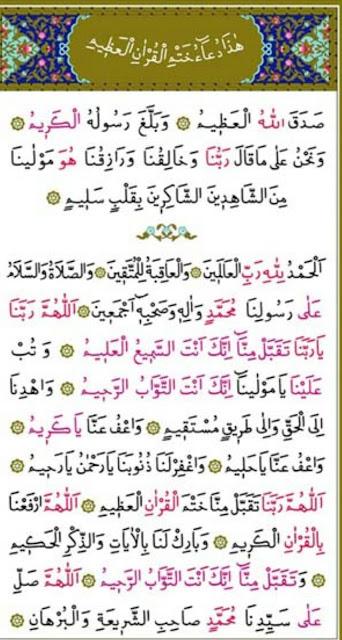 هٰذَا دُعَاءُ خَتْمِ الْقُرْاٰنِ الْعَظِيمِ
صَدَقَ اللّٰهُ الْعَظِيمُ ۞ وَبَلَّغَ رَسُولُهُ الْكَرِيمُ ۞
وَنَحْنُ عَلٰى مَا قَالَ رَبُّنَا وَخَالِقُنَا وَرَازِقُنَا هُوَ مَوْلٰينَا
مِنَ الشَّاهِدِينَ الشَّاكِرِينَ بِقَلْبٍ سَلِيمٍ ۞
اَلْحَمْدُ لِلّٰهِ رَبِّ الْعَالَمِينَ ۞ وَالْعَاقِبَةُ لِلْمُتَّقِينَ ۞ وَالصَّلَاةُ وَالسَّلَامُ
عَلٰى رَسُولِنَا مُحَمَّدٍ وَاٰلِهِ وَصَحْبِهِ اَجْمَعِينَ ۞ اَللّٰهُمَّ رَبَّنَا
يَا رَبَّنَا تَقَبَّلْ مِنَّا اِنَّكَ اَنْتَ السَّمِيعُ الْعَلِيمُ ۞ وَتُبْ
عَلَيْنَا يَا مَوْلٰينَا اِنَّكَ اَنْتَ التَّوَّابُ الرَّحِيمُ ۞ وَاهْدِنَا
اِلَى الْحَقِّ وَاِلٰى طَرِيقٍ مُسْتَقِيمٍ ۞ وَاعْفُ عَنَّا يَا كَرِيمُ ۞
وَاعْفُ عَنَّا يَا حَلِيمُ ۞ وَاغْفِرْ لَنَا ذُنُوبَنَا يَا رَحْمٰنُ يَا رَحِيمُ ۞
اَللّٰهُمَّ رَبَّنَا تَقَبَّلْ مِنَّا خَتْمَ الْقُرْاٰنِ الْعَظِيمِ ۞ اَللّٰهُمَّ ارْفَعْنَا
بِالْقُرْاٰنِ الْكَرِيمِ ۞ وَبَارِكْ لَنَا بِالْاٰيَاتِ وَالذِّكْرِ الْحَكِيمِ
۞ وَتَقَبَّلْ مِنَّا اِنَّكَ اَنْتَ التَّوَّابُ الرَّحِيمُ ۞ اَللّٰهُمَّ صَلِّ
عَلٰى سَيِّدِنَا مُحَمَّدٍ صَاحِبِ الشَّرِيعَةِ وَالْبُرْهَانِ ۞